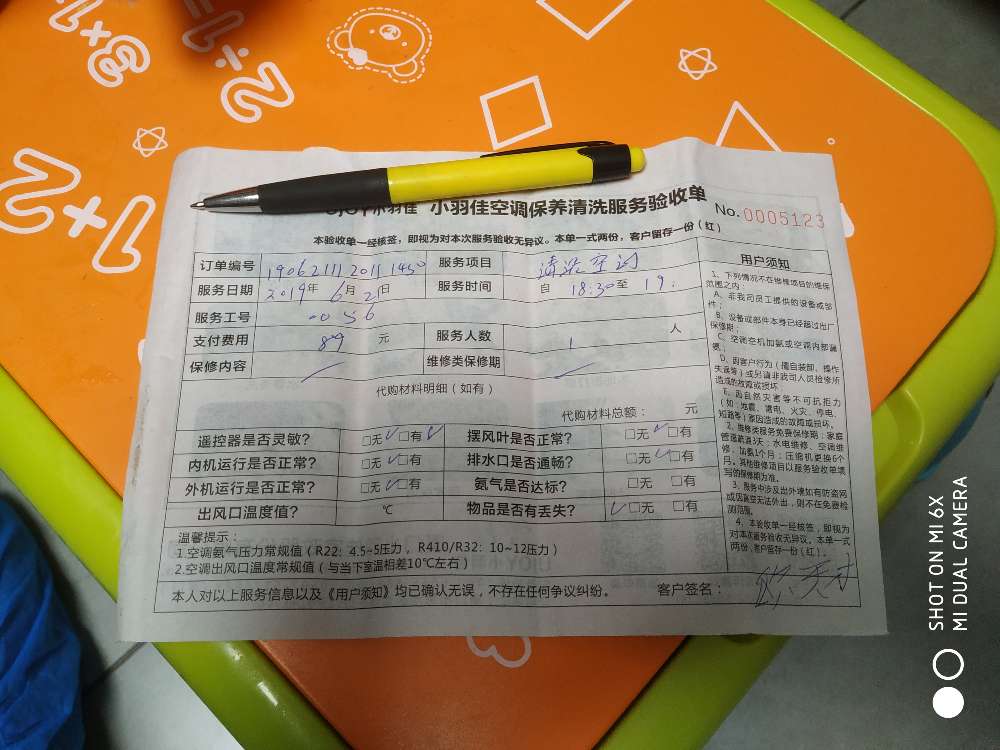 小羽佳空调保养清洗服务验收单
No.0005123
本验收单一经核签，即视为对本次服务验收无异议。本单一式两份，客户留存一份（红）
订单编号 服务项目 清洗空调
服务日期 2019年 6月 21日 服务时间 自 18:30至 19:
服务工号 0056
支付费用 89 元 服务人数 1 人
保修内容 维修类保修期
代购材料明细（如有）
代购材料总额： 元
遥控器是否灵敏？ □无 □有 摆风叶是否正常？ □无 □有
内机运行是否正常？ □无 □有 排水口是否通畅？ □无 □有
外机运行是否正常？ □无 □有 氨气是否达标？ □无 □有
出风口温度值？ ℃ 物品是否有丢失？ □无 □有
温馨提示：
1.空调氨气压力常规值（R22：4.5~5压力，R410/R32：10~12压力）
2.空调出风口温度常规值（与当下室温相差10℃左右）
本人对以上服务信息以及《用户须知》均已确认无误，不存在任何争议纠纷。 客户签名：
用户须知
1、下列情况不在维修项目的维保
范围之内：
A、非我司员工提供的设备或部
件；
B、设备或部件本身已经超过出厂
保修期；
C、空调空机加氨或空调内部漏
氨；
D、因客户行为（擅自装卸、操作
失误等）或另请非我司人员检修所
造成的故障或损坏
E、因自然灾害等不可抗拒力
（如：地震、雷电、火灾、停电、
短路等）原因造成的故障或损坏。
2、维修类服务免费保修期：家庭
管道疏通3天；水电维修、空调维
修、加氨1个月；压缩机更换6个
月。其他维修项目以服务验收单填
写的保修期为准。
3、服务中涉及出外墙如有防盗网
或因高空无法外出，则不在免费检
测范围。
4、本验收单一经核签，即视为
对本次服务验收无异议。本单一式
两份，客户留存一份（红）。
SHOT ON MI 6X
MI DUAL CAMERA